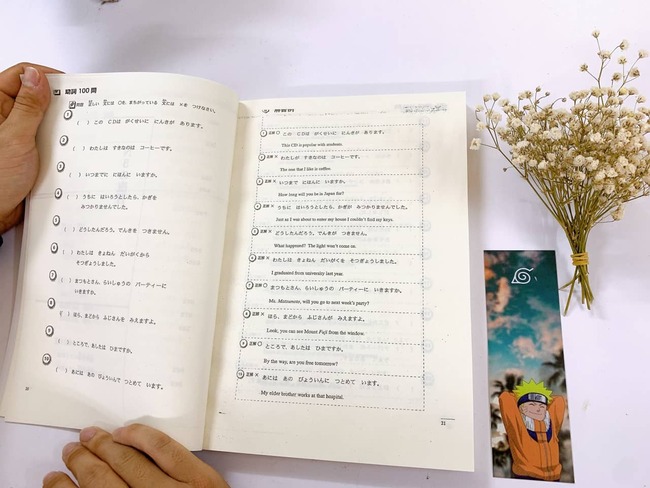 助詞 100 問
例題 正しい 文には ○を、まちがっている 文には ×を つけなさい。
1
( ) この CDは がくせいに にんきが あります。
2
( ) わたしは すきなのは コーヒーです。
3
( ) いつまでに にほんに いますか。
4
( ) うちに はいろうとしたら、かぎを
みつかりませんでした。
5
( ) どうしたんだろう、でんきを つきません。
6
( ) わたしは きょねん だいがくから
そつぎょうしました。
7
( ) まつもとさん、らいしゅうの パーティーに
いきますか。
8
( ) ほら、まどから ふじさんを みえますよ。
9
( ) ところで、あしたは ひまですか。
10
( ) あには あの びょういんで つとめて います。
20
1 正解 ○ この CDは がくせいに にんきが あります。
This CD is popular with students.
2 正解 × わたしが すきなのは コーヒーです。
The one that I like is coffee.
3 正解 × いつまで にほんに いますか。
How long will you be in Japan for?
4 正解 × うちに はいろうとしたら、かぎが みつかりませんでした。
Just as I was about to enter my house I couldn't find my keys.
5 正解 × どうしたんだろう、でんきが つきません。
What happened? The light won't come on.
6 正解 × わたしは きょねん だいがくを そつぎょうしました。
I graduated from university last year.
7 正解 ○ まつもとさん、らいしゅうの パーティーに いきますか。
Ms. Matsumoto, will you go to next week's party?
8 正解 × ほら、まどから ふじさんが みえますよ。
Look, you can see Mount Fuji from the window.
9 正解 ○ ところで、あしたは ひまですか。
By the way, are you free tomorrow?
10 正解 × あには あの びょういんに つとめて います。
My elder brother works at that hospital.
21